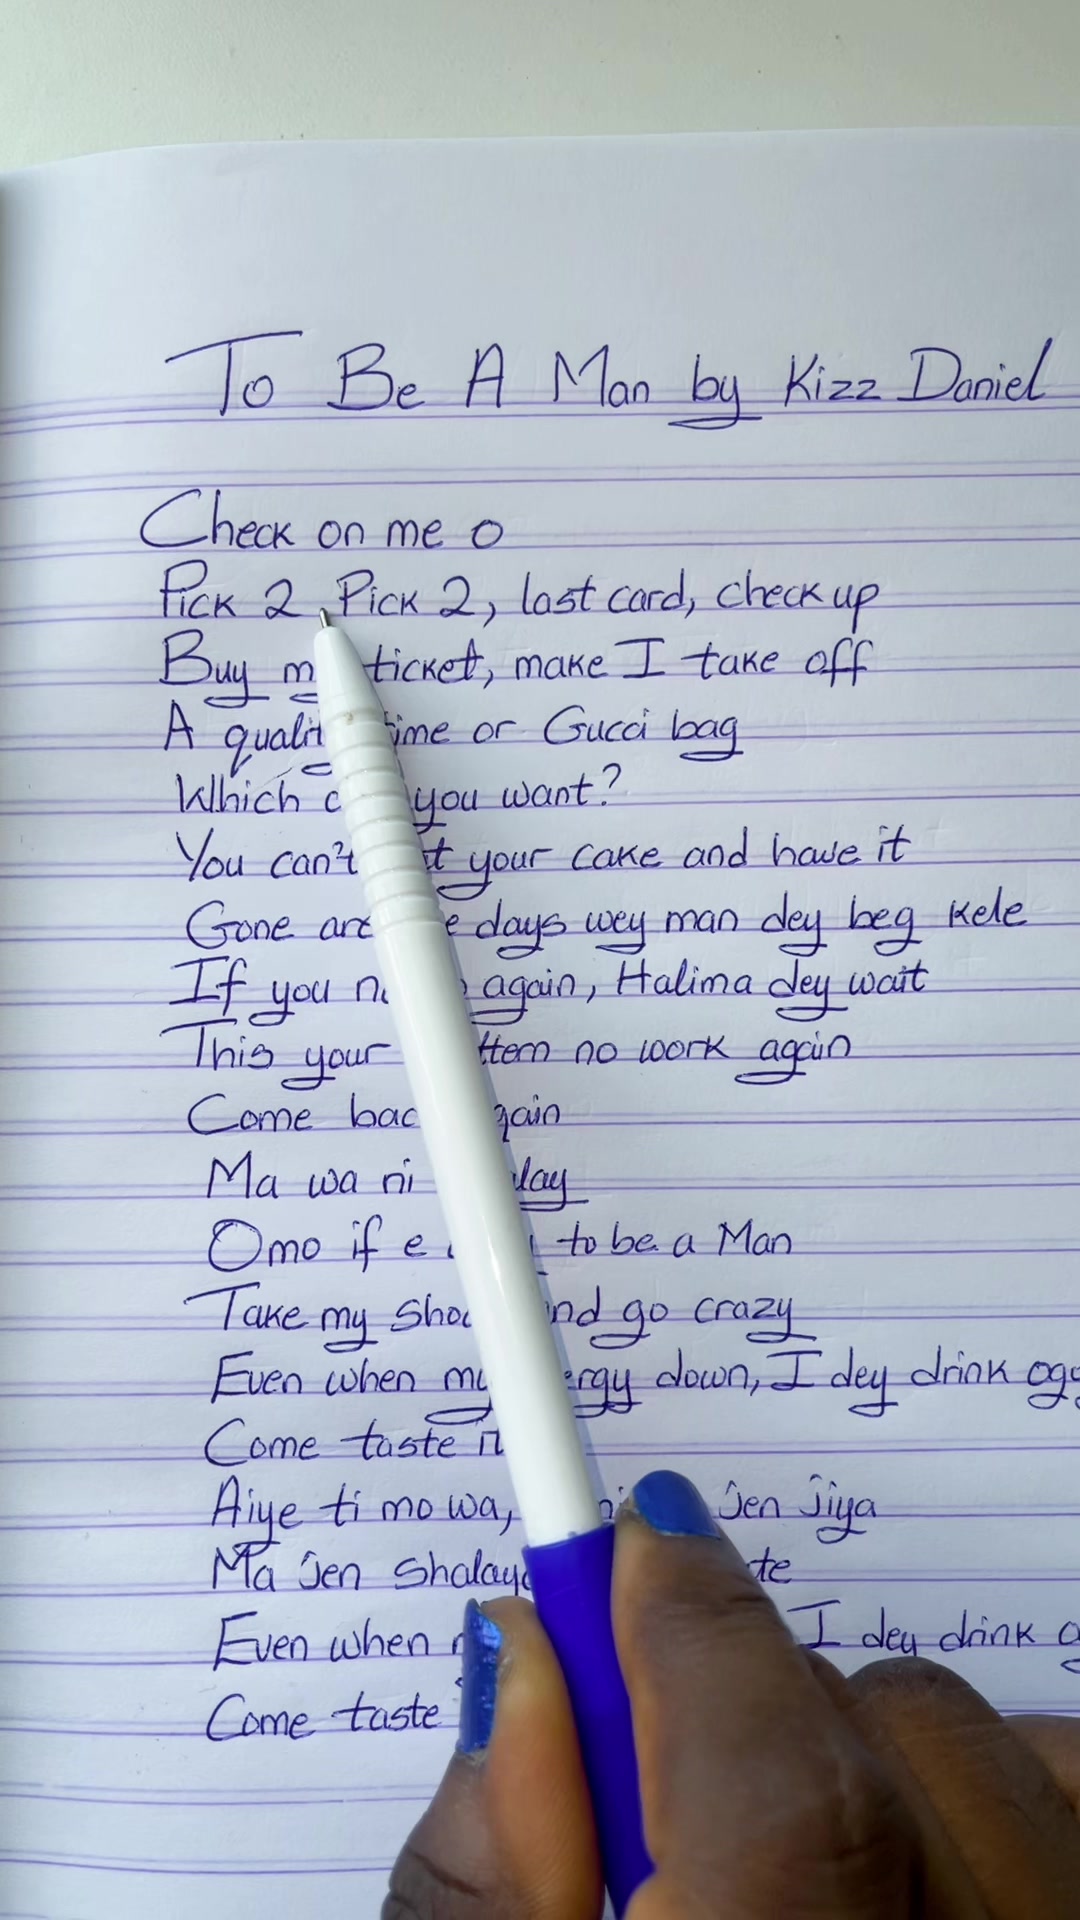 To Be A Man by Kizz Daniel
Check on me o
Pick 2, Pick 2, last card, check up
Buy ticket, make I take off
A time or Gucci bag
Which you want?
You can't your cake and have it
Gone are days wey man dey beg kele
If you again, Halima dey wait
This your no work again
Come
Ma wa ni
Omo if e to be a Man
Take my and go crazy
Even when my down, I dey drink
Come taste it
Aiye ti mo wa, jen jiya
Ma jen
Even when I dey drink
Come taste